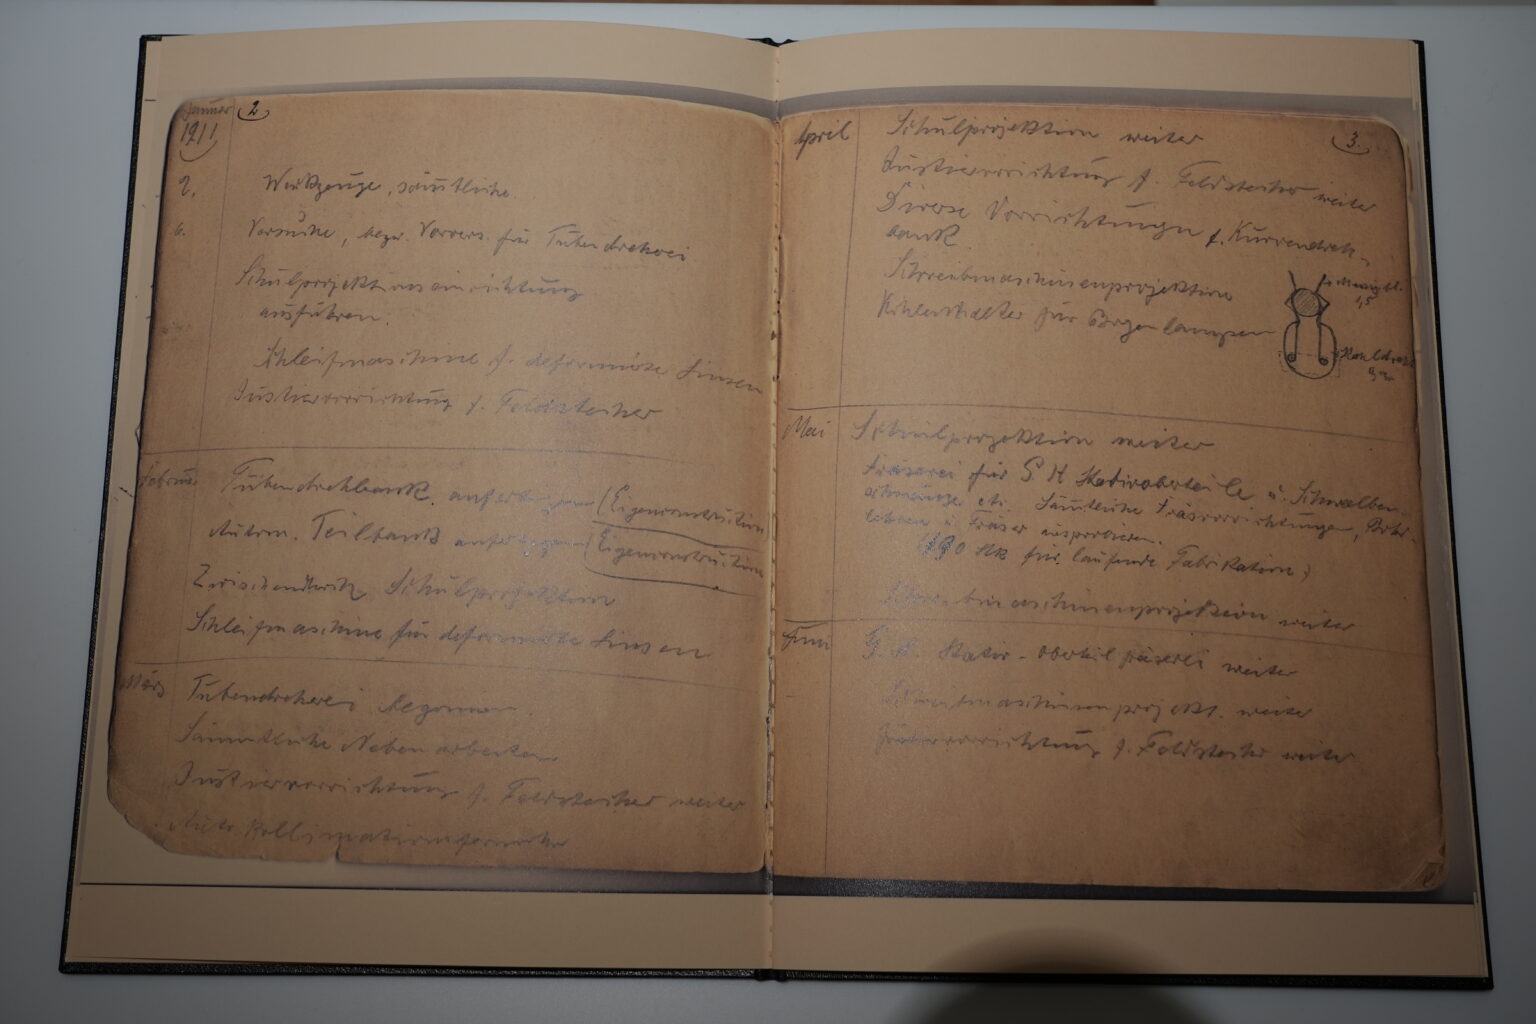 Januar
1911
2
2.
Werkzeuge, sämtliche
6.
Versuche, bezw. Vorvers. für Tubendreherei
Schulprojektionseinrichtung
ausführen.
Schleifmaschine f. deformierte Linsen
Justiervorrichtung f. Feldstecher
Februar
Tubendrehbank anfertigen (Eigenconstruction
Autom. Teilbank anfertigen (Eigenconstruction
Schulprojektion
Schleifmaschine für deformierte Linsen
März
Tubendreherei begonnen.
Sämmtliche Nebenarbeiten
Justiervorrichtung f. Feldstecher weiter
Auto Kollimationsfernrohr
3.
April
Schulprojektion weiter
Justiervorrichtung f. Feldstecher weiter
Diverse Vorrichtungen f. Kurvendreh-
bank
Schreibmaschinenprojektion
Kohlenhalter für Bogenlampen
Messingbl.
1,5
Mai
Schulprojektion weiter
Fräserei für G H Stativoberteile u. Schwalben-
schwänze etc. Sämtliche Fräsvorrichtungen, Bohr-
lehren u. Fräser ausprobieren.
Stk für laufende Fabrikation)
Schreibmaschinenprojektion weiter
Juni
G. H. Stativ-oberteil fräserei weiter
Schreibmaschinenprojekt. weiter
Justiervorrichtung f. Feldstecher weiter